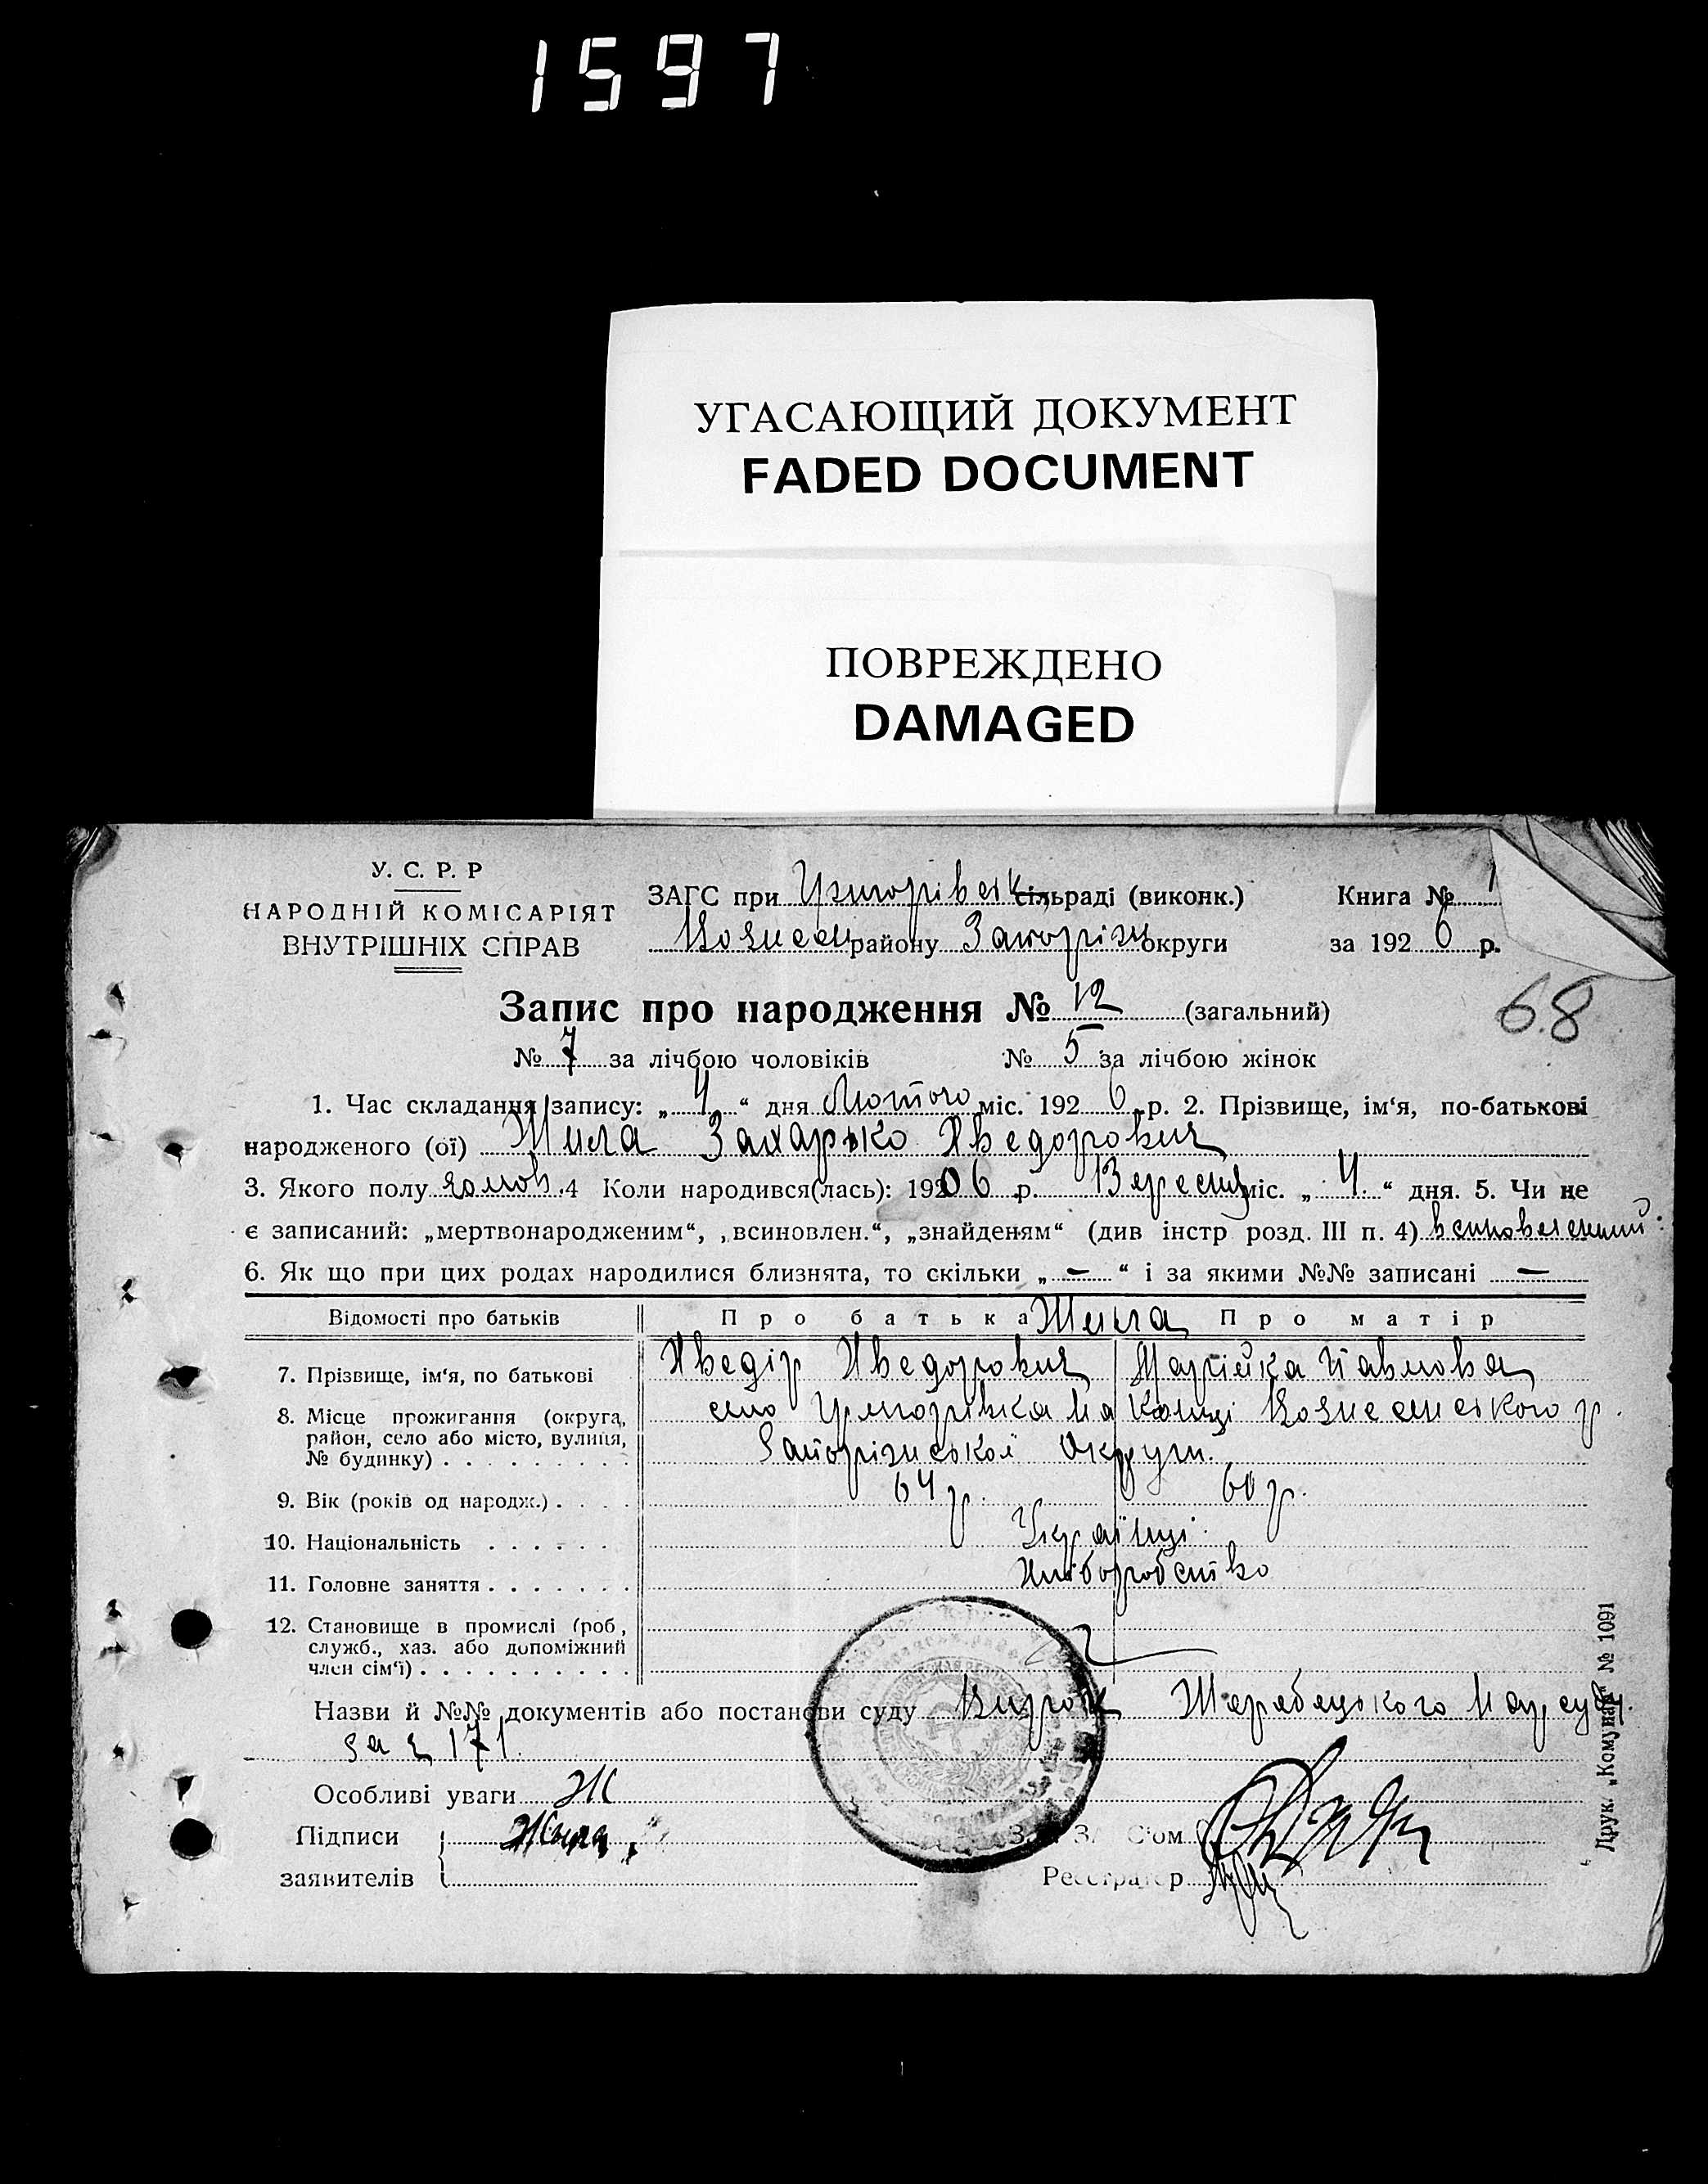 1597
УГАСАЮЩИЙ ДОКУМЕНТ
FADED DOCUMENT
ПОВРЕЖДЕНО
DAMAGED
У. С. Р. Р
НАРОДНІЙ КОМІСАРІЯТ
ВНУТРІШНІХ СПРАВ
ЗАГС при сільраді (виконк.)
Вознесен району Запоріж округи
Книга № 1
за 1926 р.
68
Запис про народження № 12 (загальний)
№ 7 за лічбою чоловіків № 5 за лічбою жінок
1. Час складання запису: „ 4 “ дня Лютого міс. 1926 р. 2. Прізвище, ім‘я, по-батькові
народженого (ої) Жила Захарько Хведорович
3. Якого полу чолов. 4 Коли народився(лась): 1906 р. Вересня міс. „ 4. “ дня. 5. Чи не
є записаний: „мертвонародженим“, „всиновлен.“, „знайденям“ (див інстр розд. III п. 4) всиновлений
6. Як що при цих родах народилися близнята, то скільки „ — “ і за якими №№ записані —
Відомості про батьків Про батька Жила Про матір
7. Прізвище, ім‘я, по батькові Хведір Хведорович Марійка Павлова
8. Місце прожигання (округа, район, село або місто, вулиця, № будинку) село Вознесенського р.
Запорізької Округи.
9. Вік (років од народж.) 64 р. 60 р.
10. Національність Українці
11. Головне заняття Хліборобство
12. Становище в промислі (роб, служб., хаз. або допоміжний член сім‘ї)
Назви й №№ документів або постанови суду Вирок Жеребецького Нар. суду.
за № 171.
Особливі уваги Ж
Підписи Жила
заявителів
Реєстратор
Друк. „Комунар“ № 1091